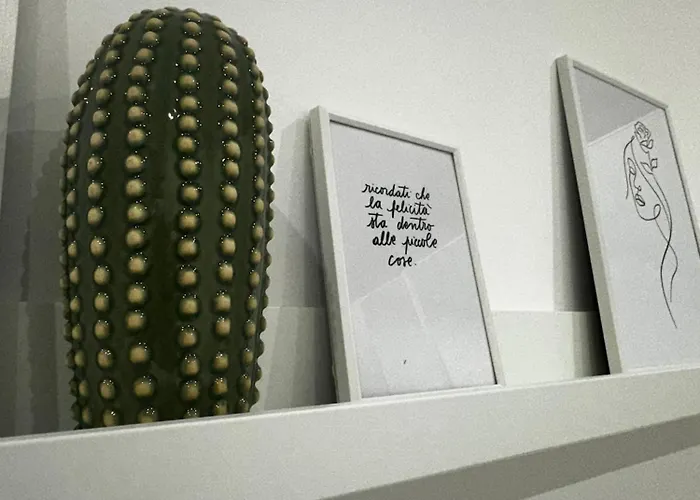 ricordati che
la felicità
sta dentro
alle piccole
cose.